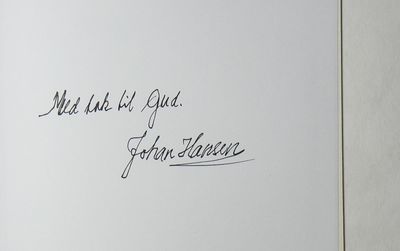 Med tak til Gud.
Johan Hansen